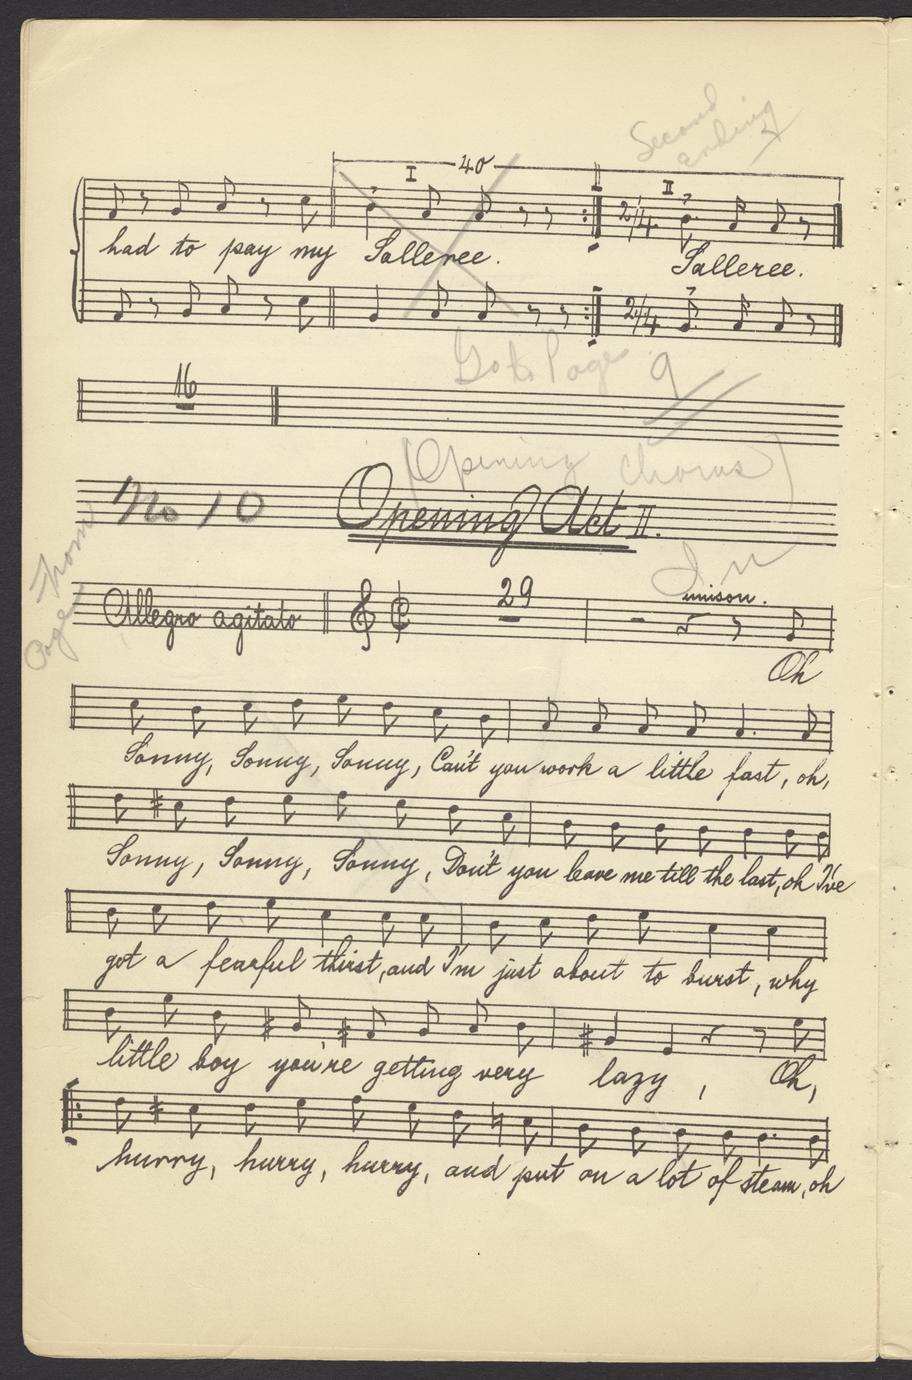 Second
Ending
40
I
II
2/4
had to pay my Salleree.
Salleree.
2/4
Go to Page 9
16
(Opening Chorus)
No 10 Opening Act II.
From
Page
In
Allegro agitato
29
unison.
Oh
Sonny, Sonny, Sonny, Can't you work a little fast, oh,
Sonny, Sonny, Sonny, Don't you leave me till the last, oh I've
got a fearful thirst, and I'm just about to burst, why
little boy you're getting very lazy, Oh,
hurry, hurry, hurry, and put on a lot of steam, oh